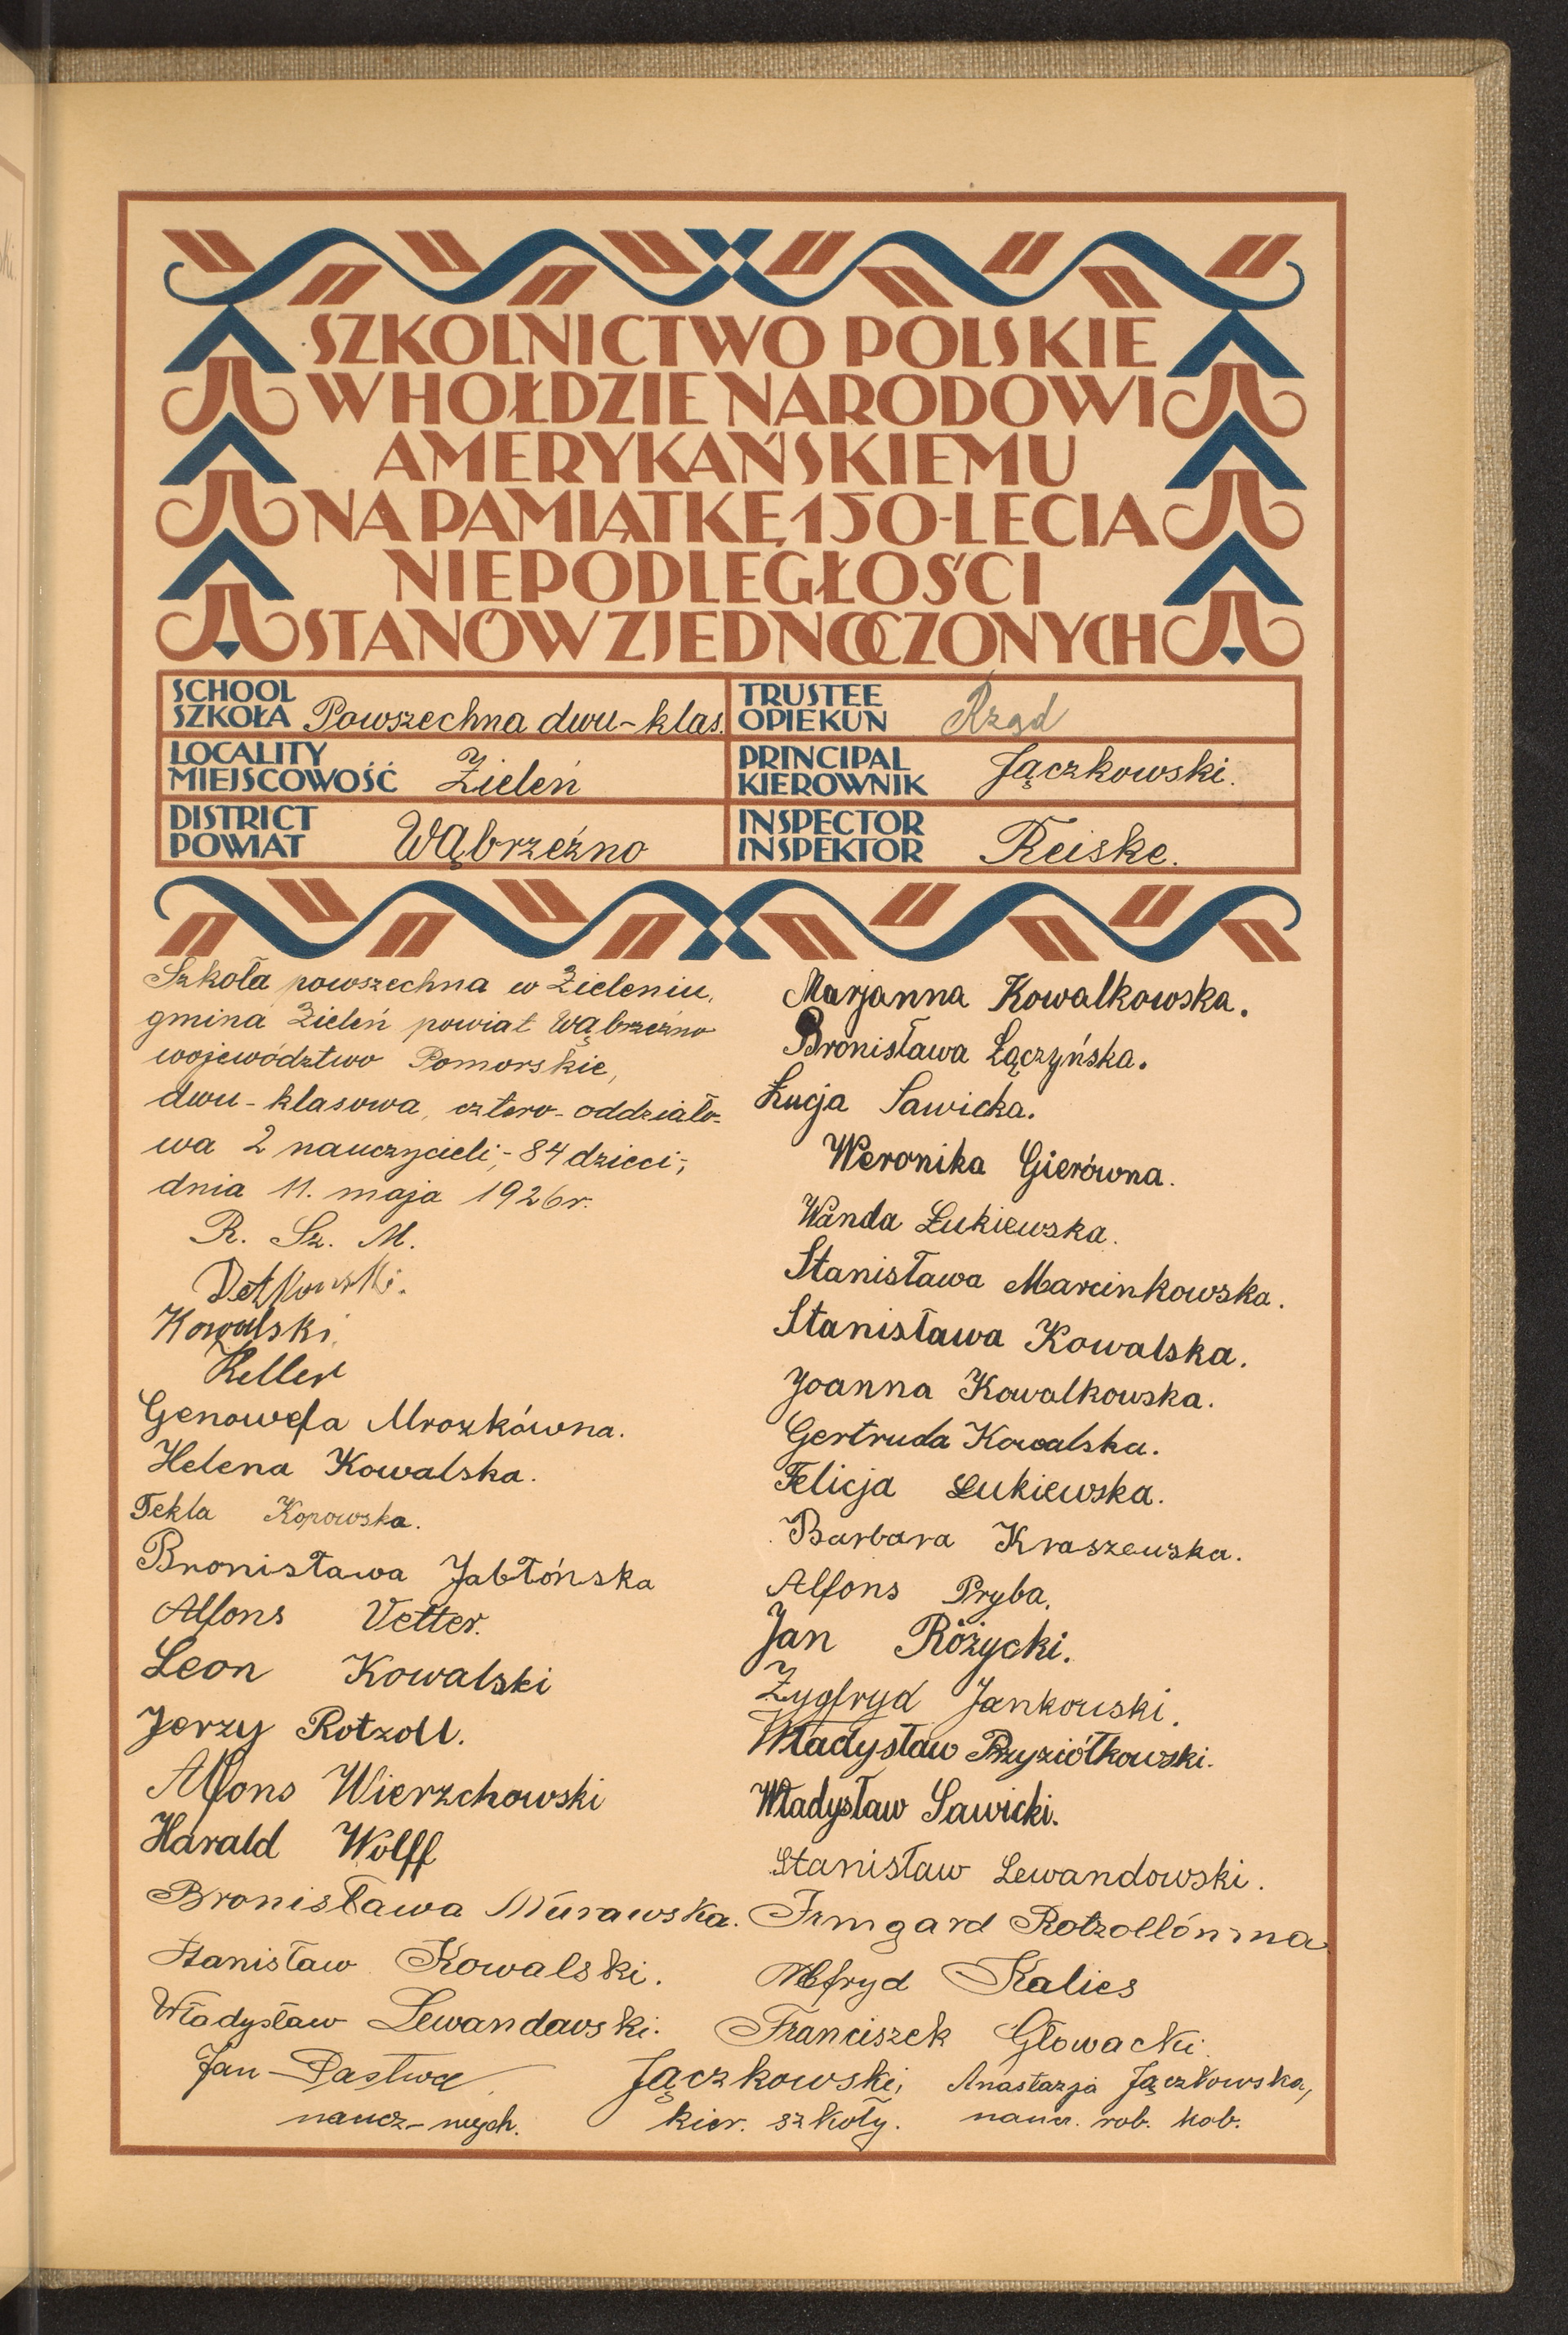 SZKOLNICTWO POLSKIE
W HOŁDZIE NARODOWI
AMERYKAŃSKIEMU
NA PAMIĄTKĘ 150-LECIA
NIEPODLEGŁOŚCI
STANÓW ZJEDNOCZONYCH
SCHOOL
SZKOŁA Powszechna dwu-klas.
TRUSTEE
OPIEKUN Rząd
LOCALITY
MIEJSCOWOŚĆ Zieleń
PRINCIPAL
KIEROWNIK Jączkowski.
DISTRICT
POWIAT Wąbrzeźno
INSPECTOR
INSPEKTOR Reiske.
Szkoła powszechna w Zieleniu,
gmina Zieleń powiat Wąbrzeźno
województwo Pomorskie,
dwu-klasowa, cztero-oddziało-
wa 2 nauczycieli,- 84 dzieci,-
dnia 11. maja 1926 r.
R. Sz. M.
Kowalski.
Keller
Genowefa Mrozkówna.
Helena Kowalska.
Tekla Kopowska.
Bronisława Jabłońska
Alfons Vetter.
Leon Kowalski
Jerzy Rotzoll.
Alfons Wierzchowski
Harald Wolff
Bronisława Murawska.
Stanisław Kowalski.
Władysław Lewandowski.
Jan Pastwa
naucz-
Marjanna Kowalkowska.
Bronisława Łączyńska.
Łucja Sawicka.
Weronika Gierówna.
Wanda Łukiewska.
Stanisława Marcinkowska.
Stanisława Kowalska.
Joanna Kowalkowska.
Gertruda Kowalska.
Felicja Łukiewska.
Barbara Kraszewska.
Alfons Pryba.
Jan Różycki.
Zygfryd Jankowski.
Władysław Przyziółkowski.
Władysław Sawicki.
Stanisław Lewandowski.
Irmgard Rotzollówna
Kalies
Franciszek Głowacki.
Jączkowski,
kier. szkoły.
Anastazja Jączkowska,
naucz. rob. kob.